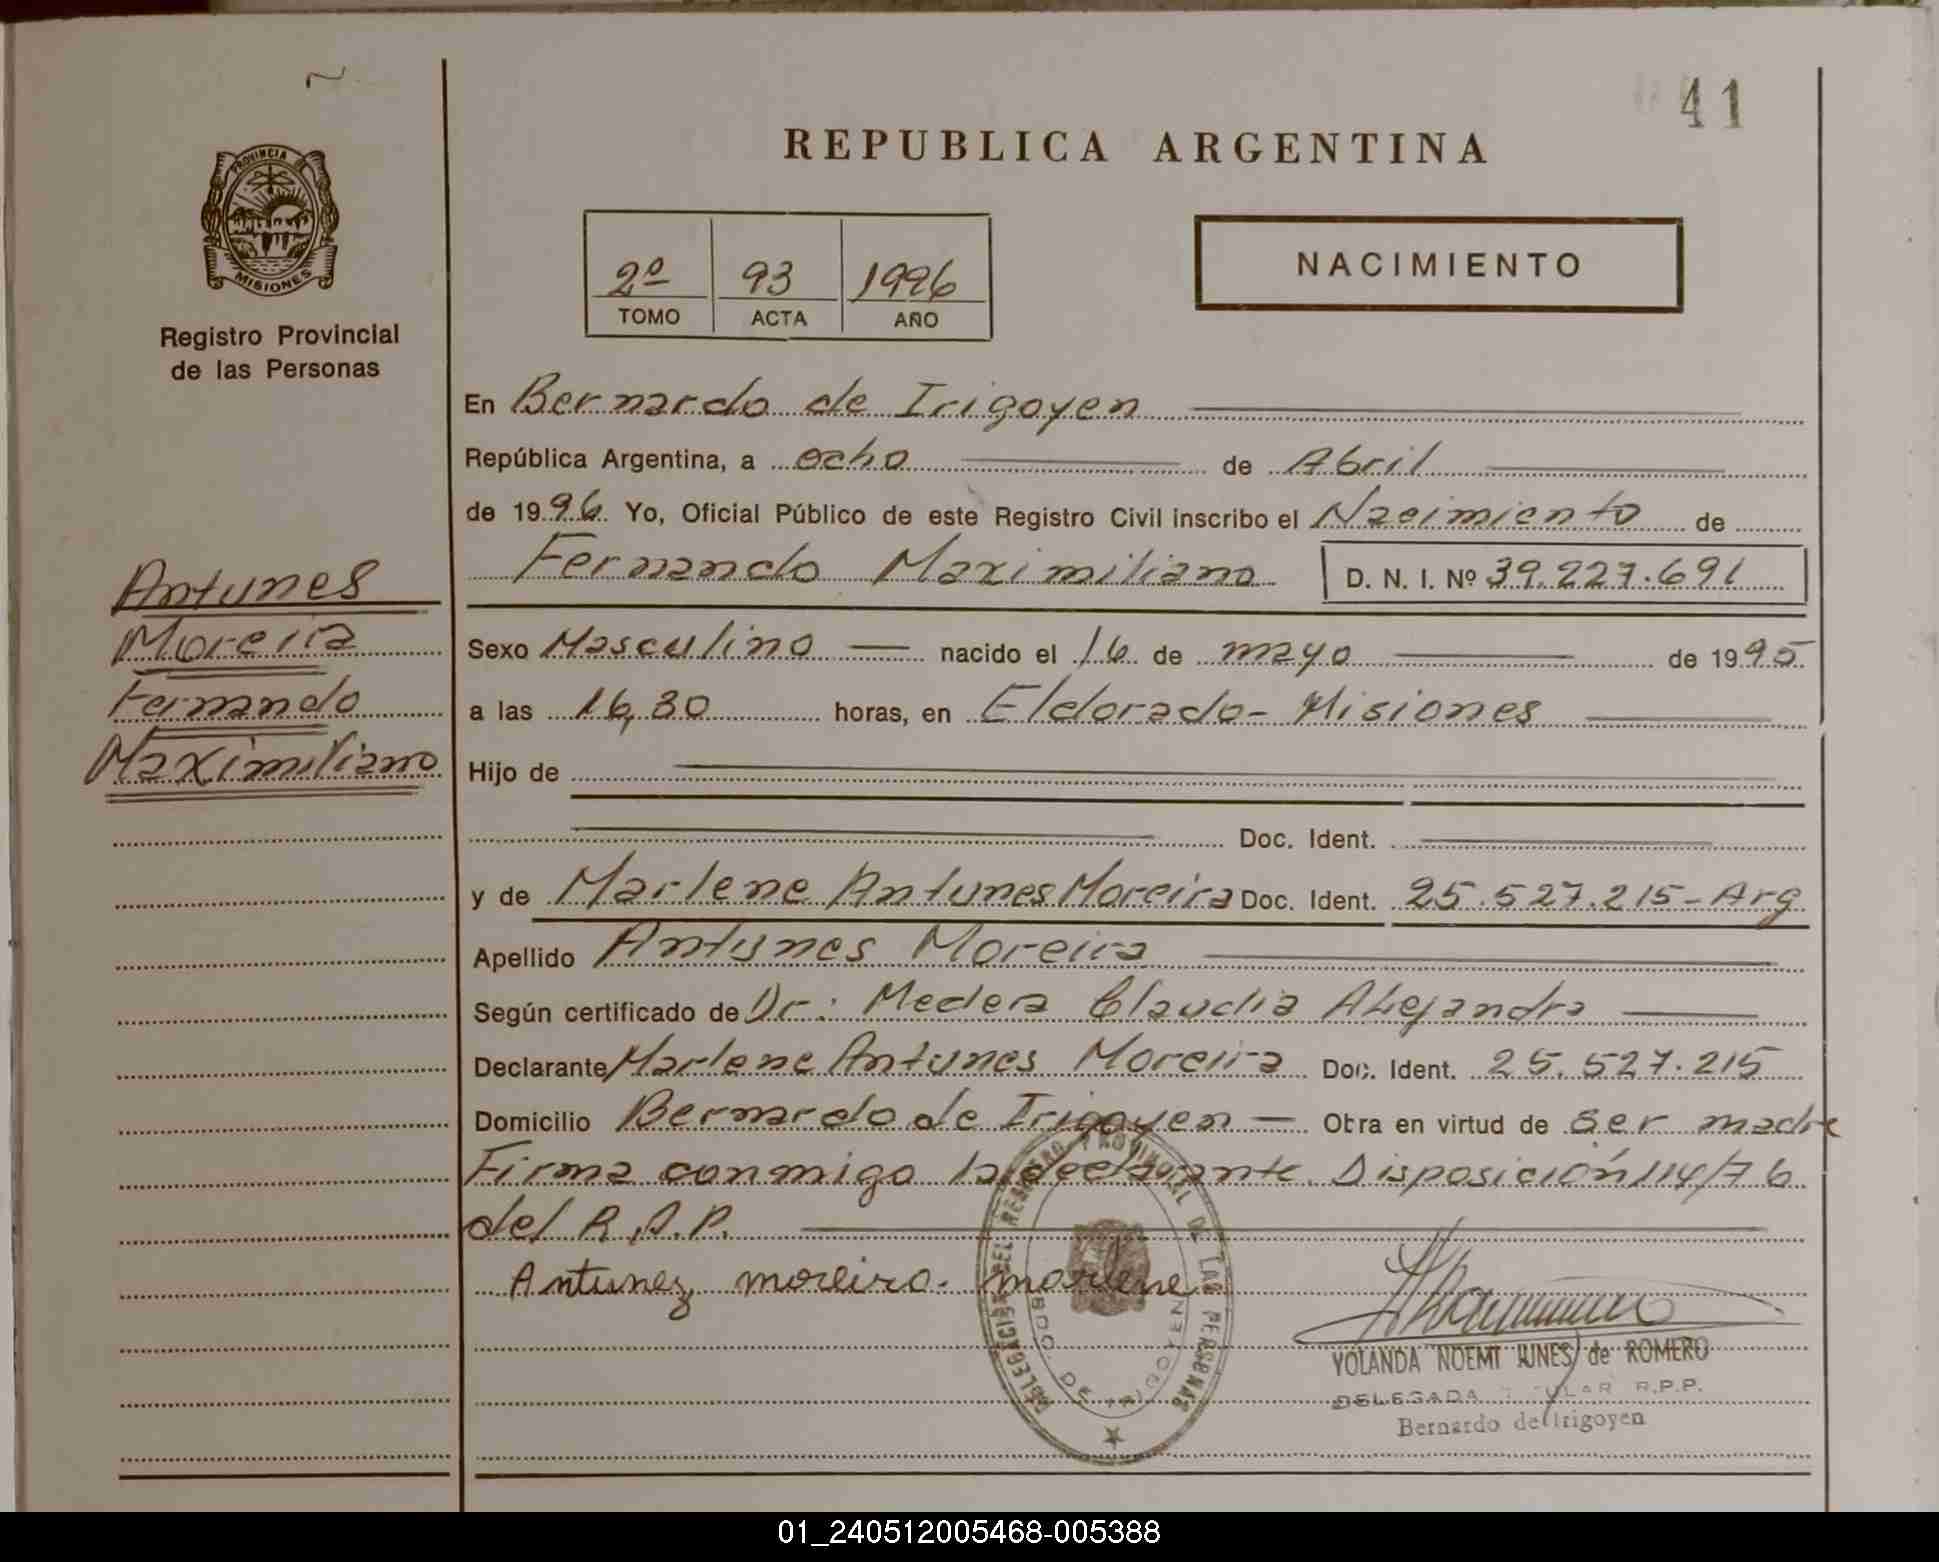 41
REPUBLICA ARGENTINA
PROVINCIA
MISIONES
Registro Provincial
de las Personas
2º 93 1996
TOMO ACTA AÑO
NACIMIENTO
En Bernardo de Irigoyen
República Argentina, a ocho de Abril
de 1996 Yo, Oficial Público de este Registro Civil inscribo el Nacimiento de
Fernando Maximiliano D. N. I. Nº 39.227.691
Antunes
Moreira
Fernando
Maximiliano
Sexo Masculino nacido el 16 de mayo de 1995
a las 16,30 horas, en Eldorado - Misiones
Hijo de
Doc. Ident.
y de Marlene Antunes Moreira Doc. Ident. 25.527.215 - Arg
Apellido Antunes Moreira
Según certificado de Dr: Medera Claudia Alejandra
Declarante Marlene Antunes Moreira Doc. Ident. 25.527.215
Domicilio Bernardo de Irigoyen - Obra en virtud de ser madre
Firma conmigo la declarante. Disposición 114/76
del R.P.P.
Antunez moreira. marlene
DELEGACIA DEL REGISTRO PROVINCIAL DE LAS PERSONAS
BDO. DE IRIGOYEN
YOLANDA NOEMI de ROMERO
DELEGADA TITULAR R.P.P.
Bernardo de Irigoyen
01_240512005468-005388